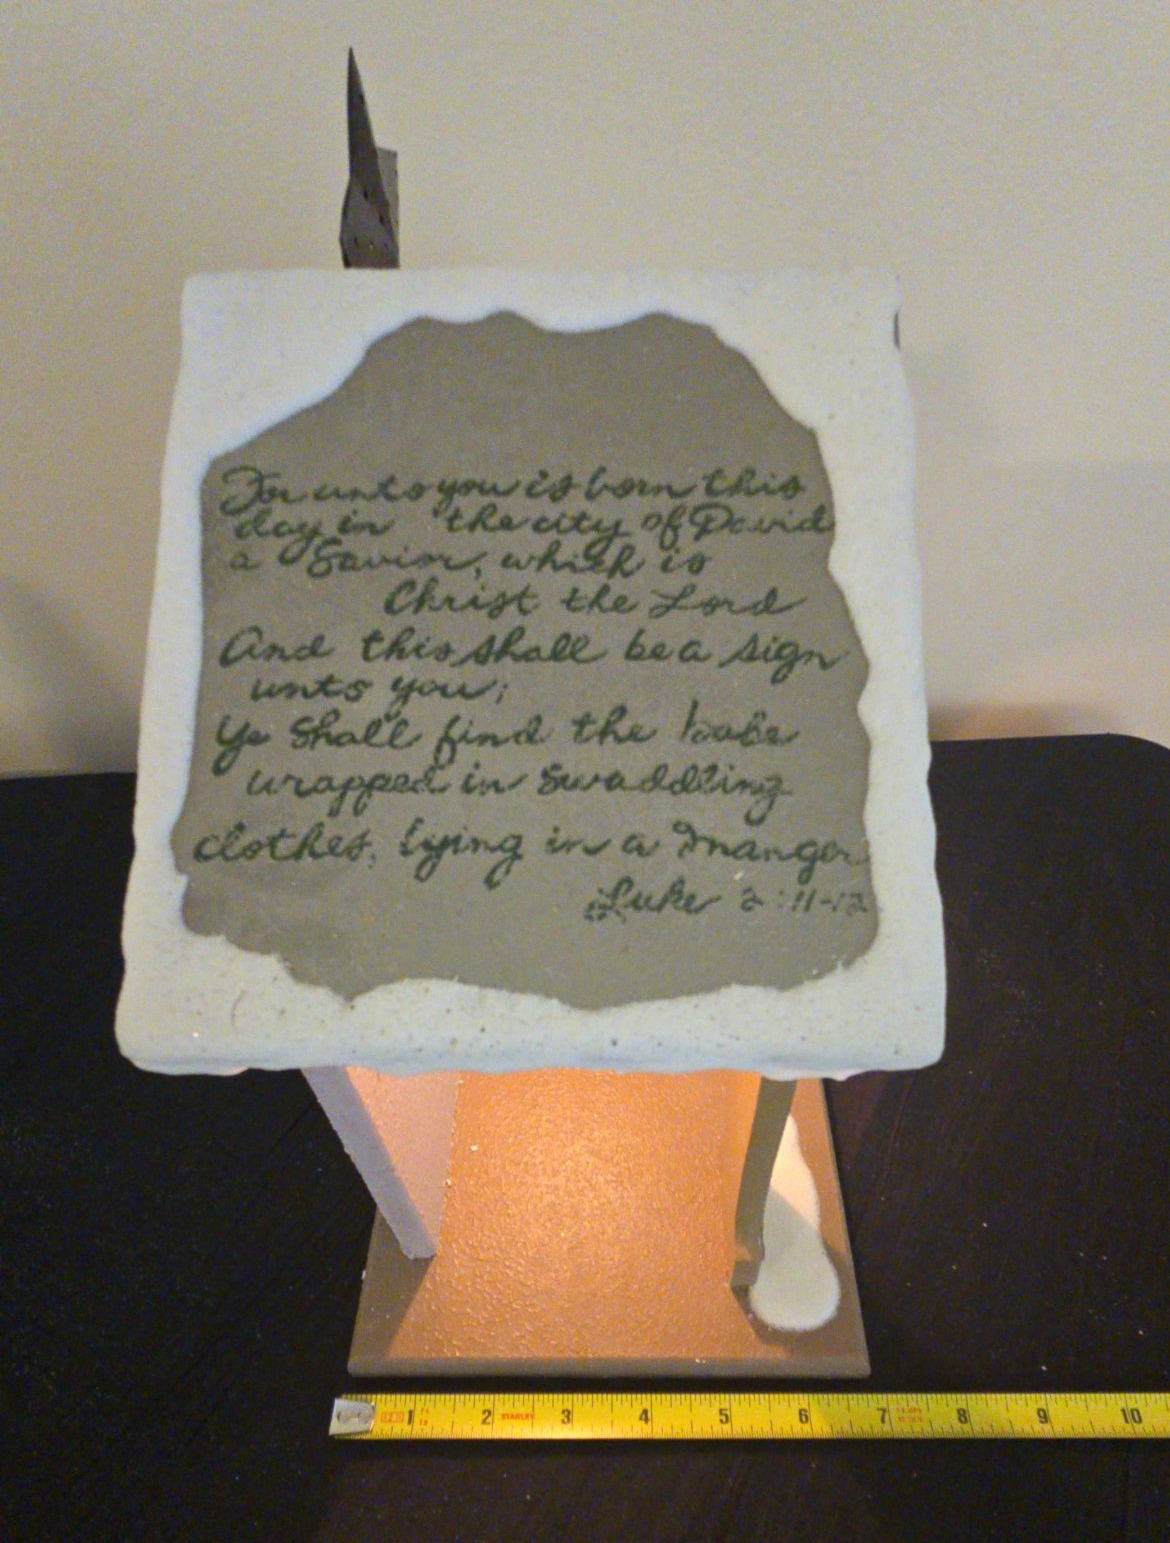 For unto you is born this
day in the city of David
a Savior, which is
Christ the Lord
And this shall be a sign
unto you;
Ye shall find the babe
wrapped in swaddling
clothes, lying in a manger
Luke 2:11-12
1 2 STANLEY 3 4 5 6 7 8 9 10